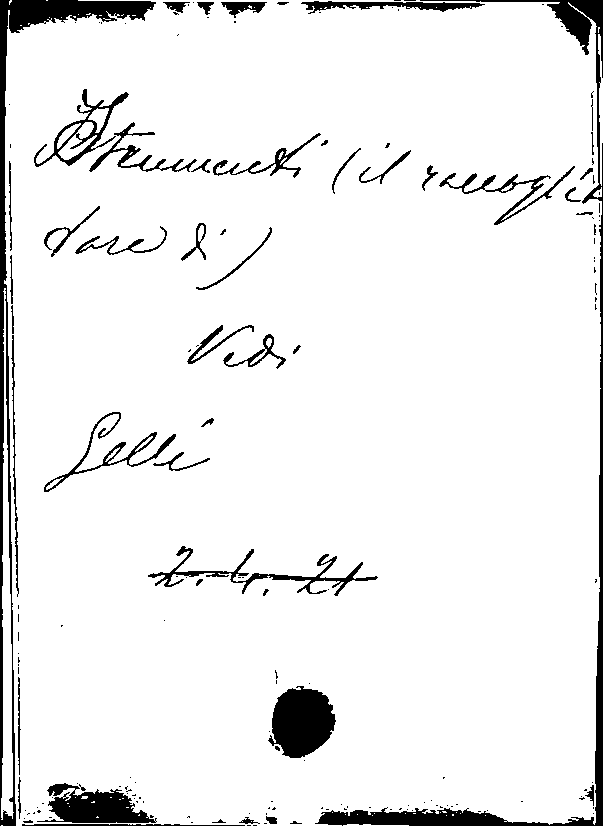 Strumenti (il raccogli-
tore di)
Vedi
Gelli
2.4.21